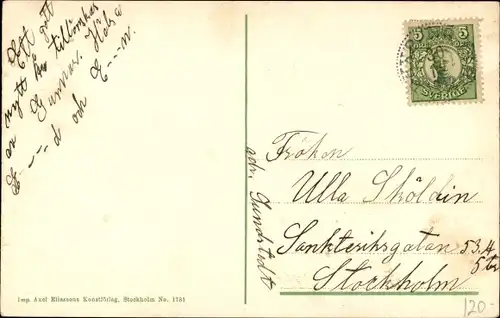 Ett gott
nytt år tillönskas
er Gunnar. Hälsa
E---d och E---n.
5 5
SVERIGE
Fröken
Ulla Sköldin
adr. Lundstedt
Sankteriksgatan 53.4
5 tr
Stockholm
Imp. Axel Eliassons Konstförlag, Stockholm No. 1181
120-